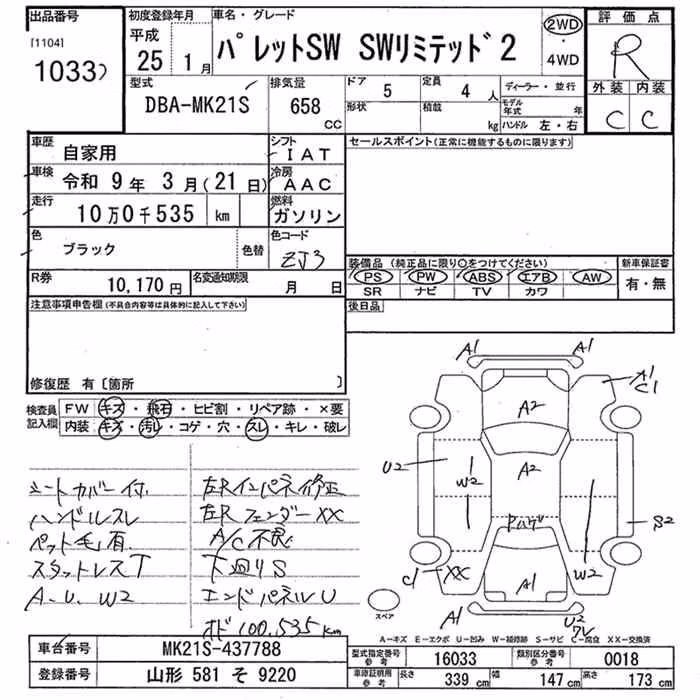 出品番号
[1104]
1033
初度登録年月
平成
25 1月
車名・グレード
パレットSW SWリミテッド2
2WD
・
4WD
評価点
R
外装 内装
C C
型式
DBA-MK21S
排気量
658
CC
ドア
5
定員
4 人
形状
積載
kg
ディーラー・並行
モデル年式 年
ハンドル 左・右
車歴
自家用
シフト
IAT
車検
令和 9年 3月(21日)
冷房
AAC
走行
10万0千535 km
燃料
ガソリン
色
ブラック
色替
色コード
ZJ3
R券
10,170円
名変通知期限
月 日
セールスポイント(正常に機能するものに限ります)
装備品(純正品に限り○をつけてください)
PS PW ABS エアB AW
SR ナビ TV カワ
新車保証書
有・無
後日品
注意事項申告欄(不具合内容等は具体的に記入して下さい)
修復歴 有〔箇所 〕
検査員記入欄
FW キズ・飛石・ヒビ割・リペア跡・×要
内装 キズ・汚レ・コゲ・穴・スレ・キレ・破レ
シートカバー付
ハンドルスレ
ペット毛有
スタットレスT
A.U.W2
左Rインパネ修正
左RフェンダーXX
A/C不良
下廻りS
エンドパネルU
オド100,535km
A1 A1
A1
C1
A2
U2
W2
A2
S2
W2
C1 XX
A1
A1
U2
ワレ
スペア
A-キズ E-エクボ U-凹み W-補修跡 S-サビ C-腐食 XX-交換済
車台番号
MK21S-437788
登録番号
山形 581 そ 9220
型式指定番号
参考
16033
類別区分番号
参考
0018
車庫証明用
参考
長さ
339 cm
幅
147 cm
高さ
173 cm